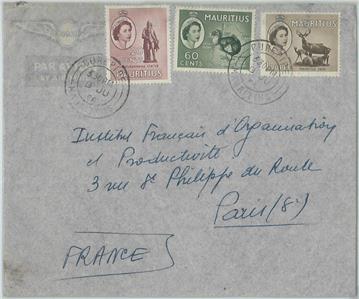 PAR AVION
MAURITIUS
60 CENTS
MAURITIUS
MAURITIUS
Institut Français d'Organisation
et Productivité
3 rue St Philippe du Roule
Paris (8e)
FRANCE